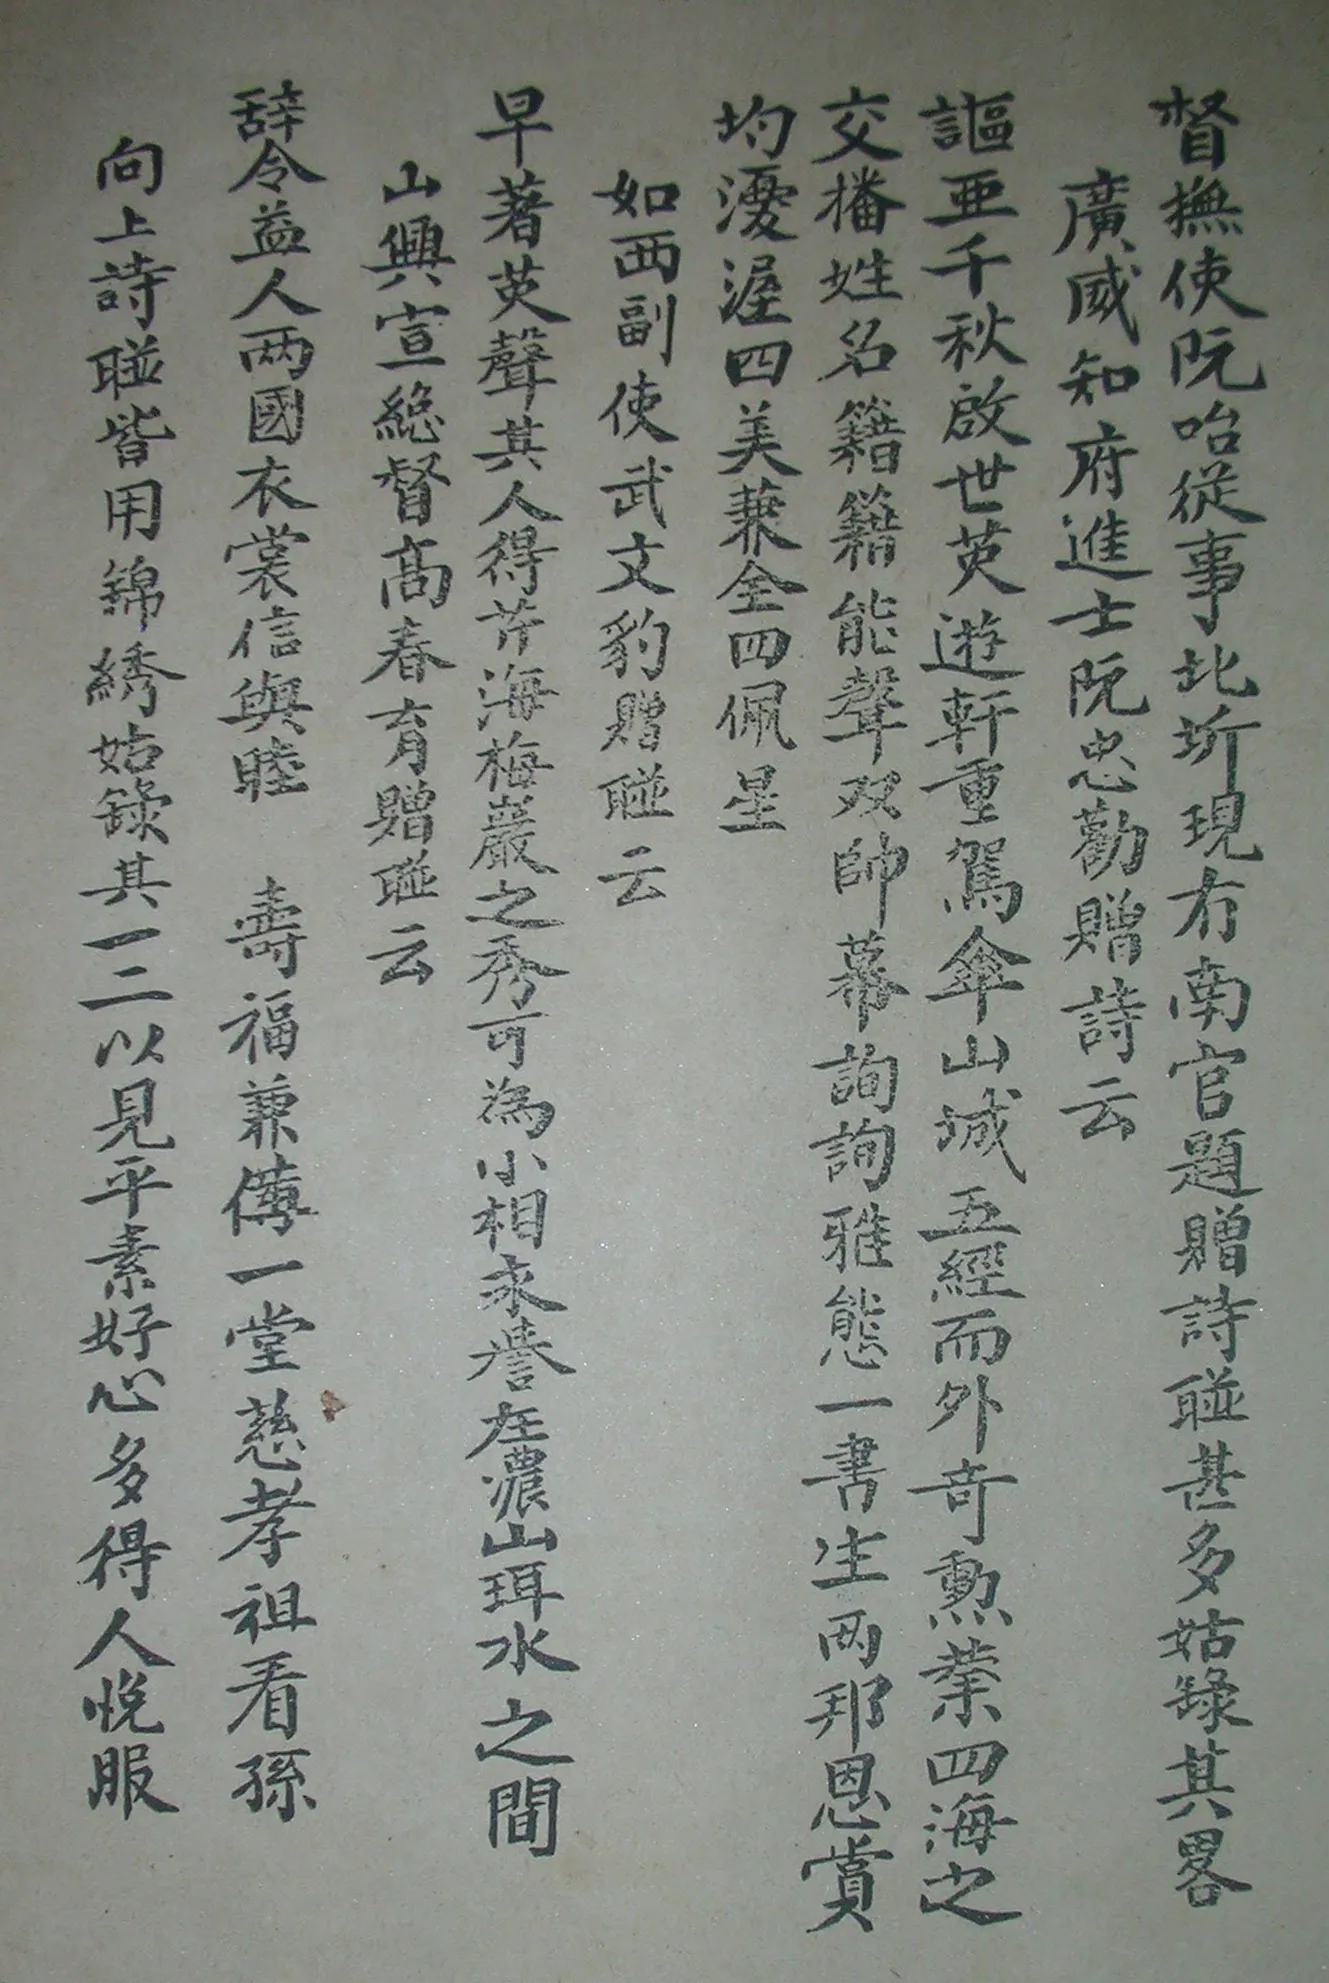 督撫使阮咍從事北圻現冇南官題贈詩聯甚多姑錄其畧
廣威知府進士阮忠勸贈詩云
謳亜千秋啟世英遊軒重駕傘山城五經而外竒勲業四海之
交播姓名籍籍能聲双帥幕詢詢雅態一書生两邦恩賞
均渥四美兼全四佩星
如西副使武文豹贈聯云
早著英聲其人得芹海梅巖之秀可為小相永譽在濃山珥水之間
山興宣總督高春育贈聯云
辞令益人两國衣裳信與睦 壽福兼一堂慈孝祖看孫
向上詩聯皆用錦綉姑錄其一二以見平素好心多得人悅服